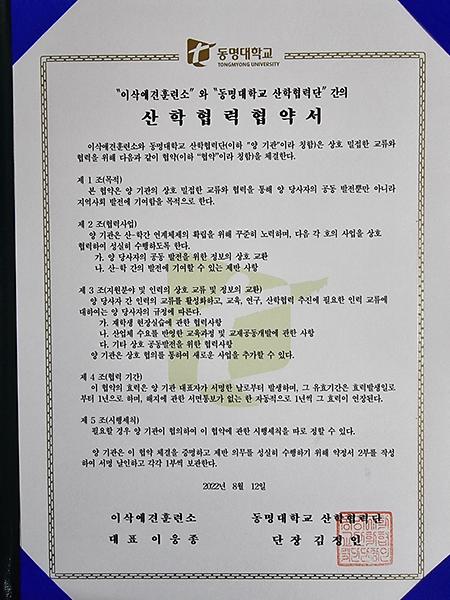 동명대학교
TONGMYONG UNIVERSITY
"이삭애견훈련소" 와 "동명대학교 산학협력단" 간의
산 학 협 력 협 약 서
이삭애견훈련소와 동명대학교 산학협력단(이하 "양 기관"이라 칭함)은 상호 밀접한 교류와
협력을 위해 다음과 같이 협약(이하 "협약"이라 칭함)을 체결한다.
제 1 조(목적)
본 협약은 양 기관의 상호 밀접한 교류와 협력을 통해 양 당사자의 공동 발전뿐만 아니라
지역사회 발전에 기여함을 목적으로 한다.
제 2 조(협력사업)
양 기관은 산-학간 연계체제의 확립을 위해 꾸준히 노력하며, 다음 각 호의 사업을 상호
협력하여 성실히 수행하도록 한다.
가. 양 당사자의 공동 발전을 위한 정보의 상호 교환
나. 산-학 간의 발전에 기여할 수 있는 제반 사항
제 3 조(지원분야 및 인력의 상호 교류 및 정보의 교환)
양 당사자 간 인력의 교류를 활성화하고, 교육, 연구, 산학협력 추진에 필요한 인력 교류에
대하여는 양 당사자의 규정에 따른다.
가. 재학생 현장실습에 관한 협력사항
나. 산업체 수요를 반영한 교육과정 및 교재공동개발에 관한 사항
다. 기타 상호 공동발전을 위한 협력사항
양 기관은 상호 협의를 통하여 새로운 사업을 추가할 수 있다.
제 4 조(협력 기간)
이 협약의 효력은 양 기관 대표자가 서명한 날로부터 발생하며, 그 유효기간은 효력발생일로
부터 1년으로 하며, 해지에 관한 서면통보가 없는 한 자동적으로 1년씩 그 효력이 연장된다.
제 5 조(시행세칙)
필요할 경우 양 기관이 협의하여 이 협약에 관한 시행세칙을 따로 정할 수 있다.
양 기관은 이 협약 체결을 증명하고 제반 의무를 성실히 수행하기 위해 약정서 2부를 작성
하여 서명 날인하고 각각 1부씩 보관한다.
2022년 8월 12일
이삭애견훈련소 동명대학교 산학협력단
대 표 이 웅 종 단 장 김 정 인